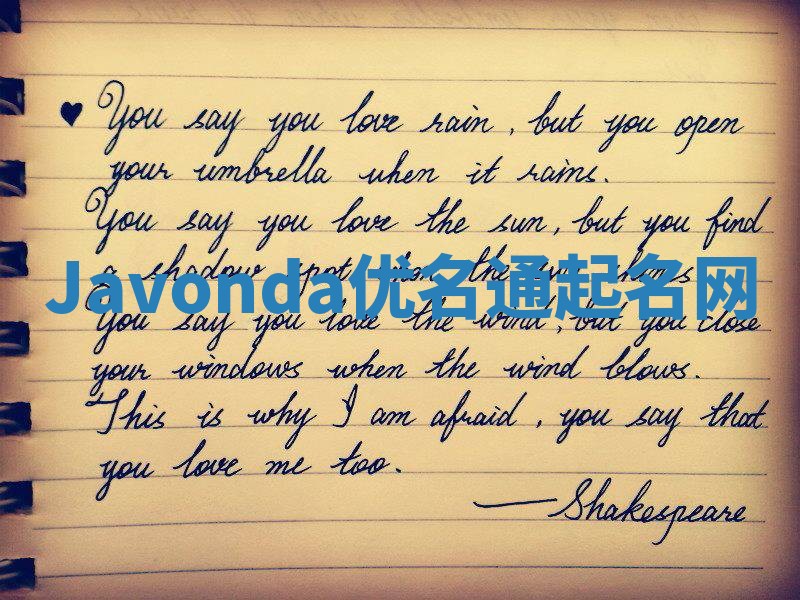 ♥ You say you love rain, but you open
your umbrella when it rains.
You say you love the sun, but you find
a shadow spot when the sun shines
Javonda优名通起名网
You say you love the wind, but you close
your windows when the wind blows.
This is why I am afraid, you say that
you love me too.
—Shakespeare